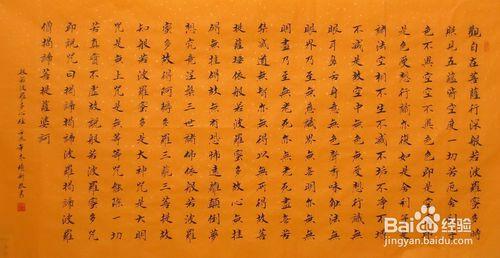 觀自在菩薩行深般若波羅蜜多時
照見五蘊皆空度一切苦厄舍利子
色不異空空不異色色即是空空即
是色受想行識亦復如是舍利子是
諸法空相不生不滅不垢不淨不增
不減是故空中無色無受想行識無
眼耳鼻舌身意無色聲香味觸法無
眼界乃至無意識界無無明亦無無
明盡乃至無老死亦無老死盡無苦
集滅道無智亦無得以無所得故菩
提薩埵依般若波羅蜜多故心無挂
礙無挂礙故無有恐怖遠離顛倒夢
想究竟涅槃三世諸佛依般若波羅
蜜多故得阿耨多羅三藐三菩提故
知般若波羅蜜多是大神咒是大明
咒是無上咒是無等等咒能除一切
苦真實不虛故說般若波羅蜜多咒
即說咒曰揭諦揭諦波羅揭諦波羅
僧揭諦菩提薩婆訶
般若波羅蜜多心經
Baidu百度经验
jingyan.baidu.com